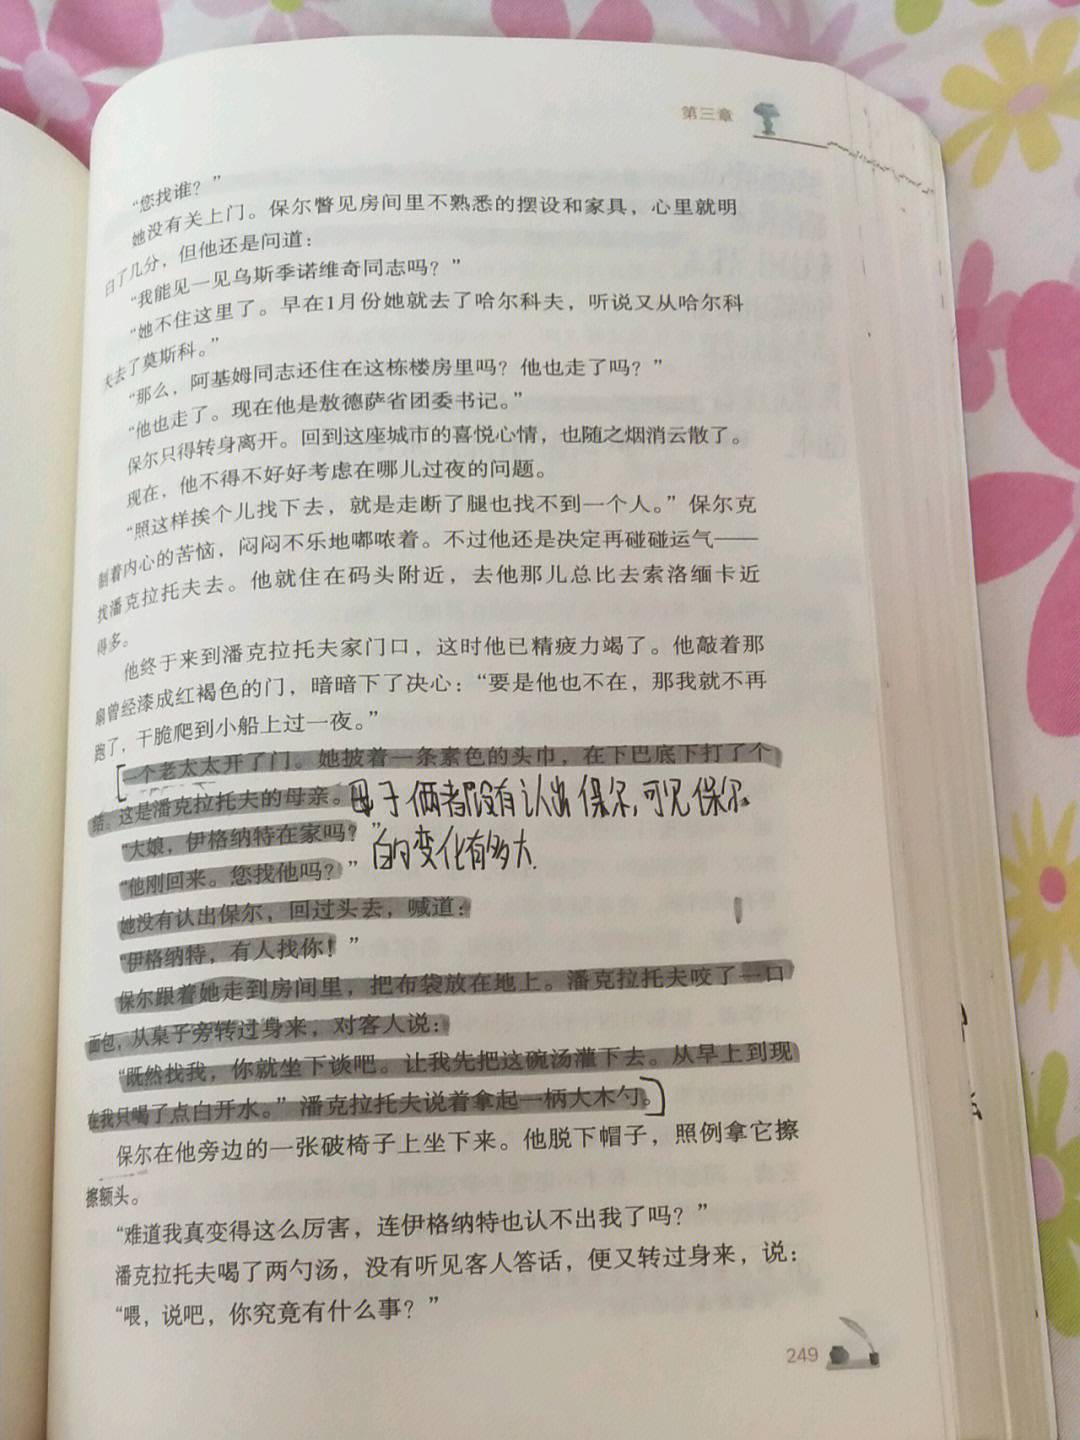 第三章
“您找谁？”
她没有关上门。保尔瞥见房间里不熟悉的摆设和家具，心里就明
白了几分，但他还是问道：
“我能见一见乌斯季诺维奇同志吗？”
“她不住这里了。早在1月份她就去了哈尔科夫，听说又从哈尔科
夫去了莫斯科。”
“那么，阿基姆同志还住在这栋楼房里吗？他也走了吗？”
“他也走了。现在他是敖德萨省团委书记。”
保尔只得转身离开。回到这座城市的喜悦心情，也随之烟消云散了。
现在，他不得不好好考虑在哪儿过夜的问题。
“照这样挨个儿找下去，就是走断了腿也找不到一个人。”保尔克
制着内心的苦恼，闷闷不乐地嘟哝着。不过他还是决定再碰碰运气——
找潘克拉托夫去。他就住在码头附近，去他那儿总比去索洛缅卡近
得多。
他终于来到潘克拉托夫家门口，这时他已精疲力竭了。他敲着那
扇曾经漆成红褐色的门，暗暗下了决心：“要是他也不在，那我就不再
跑了，干脆爬到小船上过一夜。”
一个老太太开了门。她披着一条素色的头巾，在下巴底下打了个
结。这是潘克拉托夫的母亲。
母子俩都没有认出保尔，可见保尔
的变化有多大.
“大娘，伊格纳特在家吗？”
“他刚回来。您找他吗？”
她没有认出保尔，回过头去，喊道：
“伊格纳特，有人找你！”
保尔跟着她走到房间里，把布袋放在地上。潘克拉托夫咬了一口
面包，从桌子旁转过身来，对客人说：
“既然找我，你就坐下谈吧。让我先把这碗汤灌下去。从早上到现
在我只喝了点白开水。”潘克拉托夫说着拿起一柄大木勺。
保尔在他旁边的一张破椅子上坐下来。他脱下帽子，照例拿它擦
擦额头。
“难道我真变得这么厉害，连伊格纳特也认不出我了吗？”
潘克拉托夫喝了两勺汤，没有听见客人答话，便又转过身来，说：
“喂，说吧，你究竟有什么事？”
249